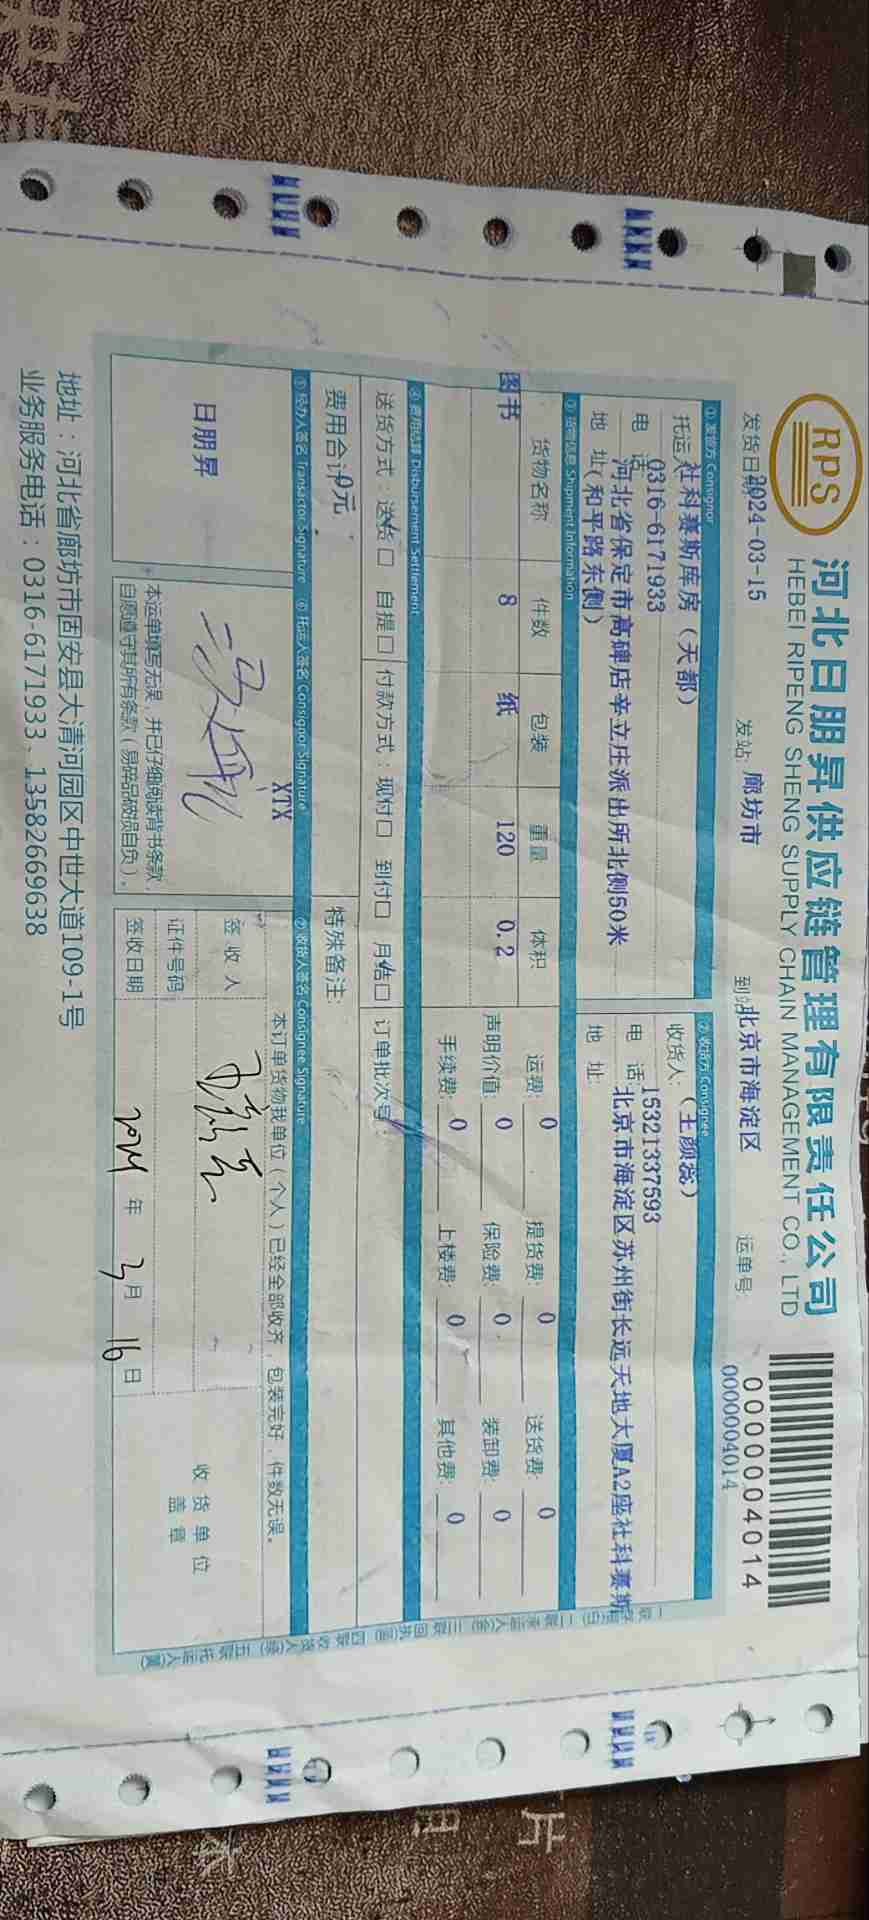 RPS
河北日朋昇供应链管理有限责任公司
HEBEI RIPENG SHENG SUPPLY CHAIN MANAGEMENT CO., LTD
00000004014
0000004014
发货日期 2024-03-15 发站: 廊坊市 到站 北京市海淀区 运单号:
① 发货方 Consignor
托运人 社科赛斯库房（天都）
电 话 0316-6171933
地 址 河北省保定市高碑店辛立庄派出所北侧50米（和平路东侧）
② 收货方 Consignee
收货人: （王颜蕊）
电 话: 15321337593
地 址: 北京市海淀区苏州街长远天地大厦A2座社科赛斯
③ 货物信息 Shipment Information
货物名称 件数 包装 重量 体积
图书 8 纸 120 0.2
运费: 0 提货费: 0 送货费: 0
声明价值: 0 保险费: 0 装卸费: 0
手续费: 0 上楼费: 0 其他费: 0
④ 费用结算 Disbursement Settlement
送货方式：送货☐ 自提☐ 付款方式：现付☐ 到付☐ 月结☐ 订单批次号:
费用合计 0元
特殊备注:
⑤ 经办人签名 Transactor Signature ⑥ 托运人签名 Consignor Signature ⑦ 收货人签名 Consignee Signature
日朋昇
XTX
本运单填写无误，并已仔细阅读背书条款，
自愿遵守其所有条款（易碎品破损自负）。
本订单货物我单位（个人）已经全部收齐，包装完好，件数无误。
签 收 人
证件号码
签收日期 2024 年 3 月 16 日
收货单位
盖 章
地址：河北省廊坊市固安县大清河园区中世大道109-1号
业务服务电话：0316-6171933、13582669638